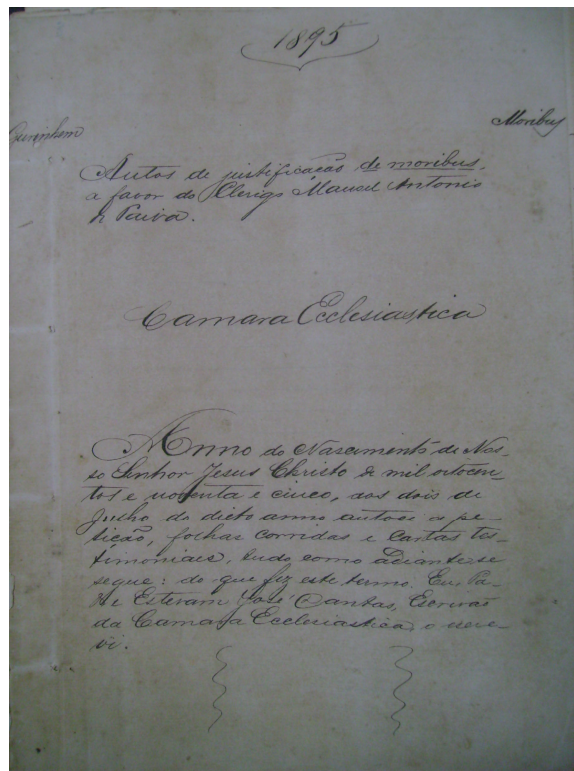 1895
Gurinhem
Moribus
Autos de justificação de moribus,
a favor do Clerigo Manoel Antonio
de Paiva.
Camara Ecclesiastica
Anno do Nascimento de Nos-
so Senhor Jesus Christo de mil oitocen-
tos e noventa e cinco, aos dois de
Julho do dicto anno autoei a pe-
tição, folhas corridas e cartas tes-
timoniaes, tudo como adiante se
segue: do que fiz este termo. Eu, Pa-
dre Estevam José Dantas, Escrivão
da Camara Ecclesiastica, o escre-
vi.